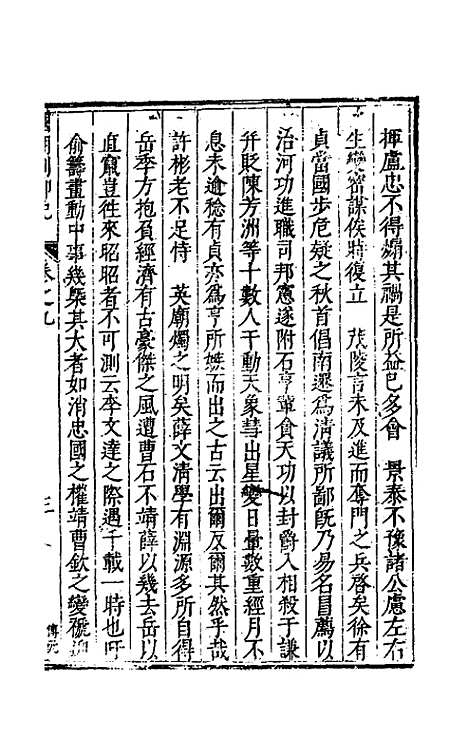 揮盧忠不得煽其禍是所益已多會　景泰不豫諸公慮左右
生變密謀俟時復立　茂陵言未及進而奪門之兵啓矣徐有
貞當國步危疑之秋首倡南遷爲清議所鄙旣乃易名昌薦以
治河功進職司邦憲遂附石亨輩貪天功以封爵入相殺于謙
并貶陳芳洲等十數人干動天象彗出星變日暈數重經月不
息未逾稔有貞亦爲亨所嫉而出之古云出爾反爾其然乎哉
許彬老不足恃　英廟燭之明矣薛文清學有淵源多所自得
岳季方抱負經濟有古豪傑之風遭曹石不靖薛以幾去岳以
直竄豈往來昭昭者不可測云李文達之際遇千載一時也吁
俞籌畫動中事幾槩其大者如消忠國之權靖曹欽之變褫
卷之九
三
傅元